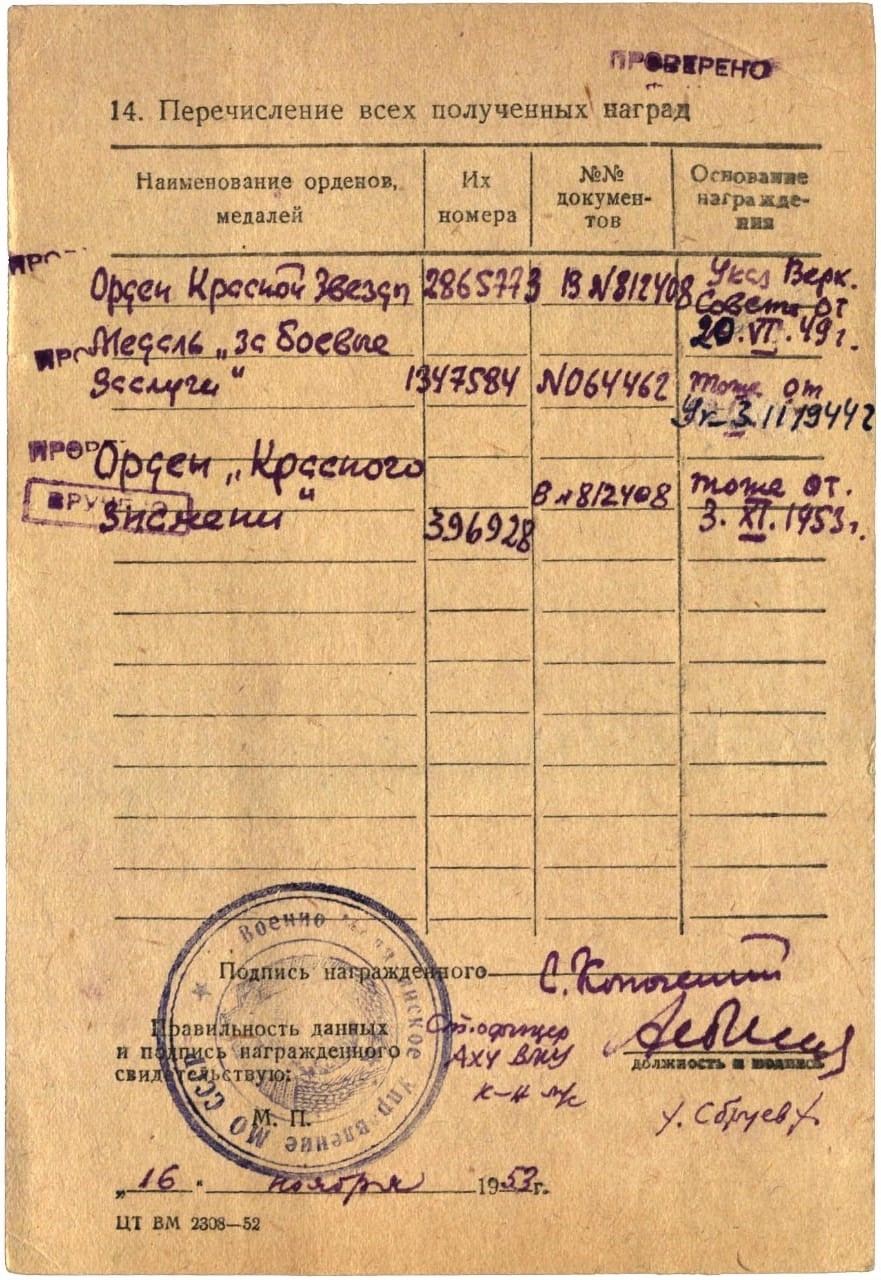 ПРОВЕРЕНО
14. Перечисление всех полученных наград
Наименование орденов, медалей
Их номера
№№ докумен-тов
Основание награжде-ния
Орден Красной Звезды 2865773 В №812408 Указ Верх. Совета от 20.VI.49 г.
Медаль „За боевые
заслуги" 1347584 №064462 тоже от
3.II 1944 г
Орден „Красного
Знамени" 396928 В №812408 тоже от. 3.XI.1953 г.
Подпись награжденного
Правильность данных
и подпись награжденного
свидетельствую:
Ст. офицер
АХУ ВМУ
к-н м/с
должность и подпись
М. П.
„16" ноября 1953 г.
ЦТ ВМ 2308—52
Военно Управление МО ССР